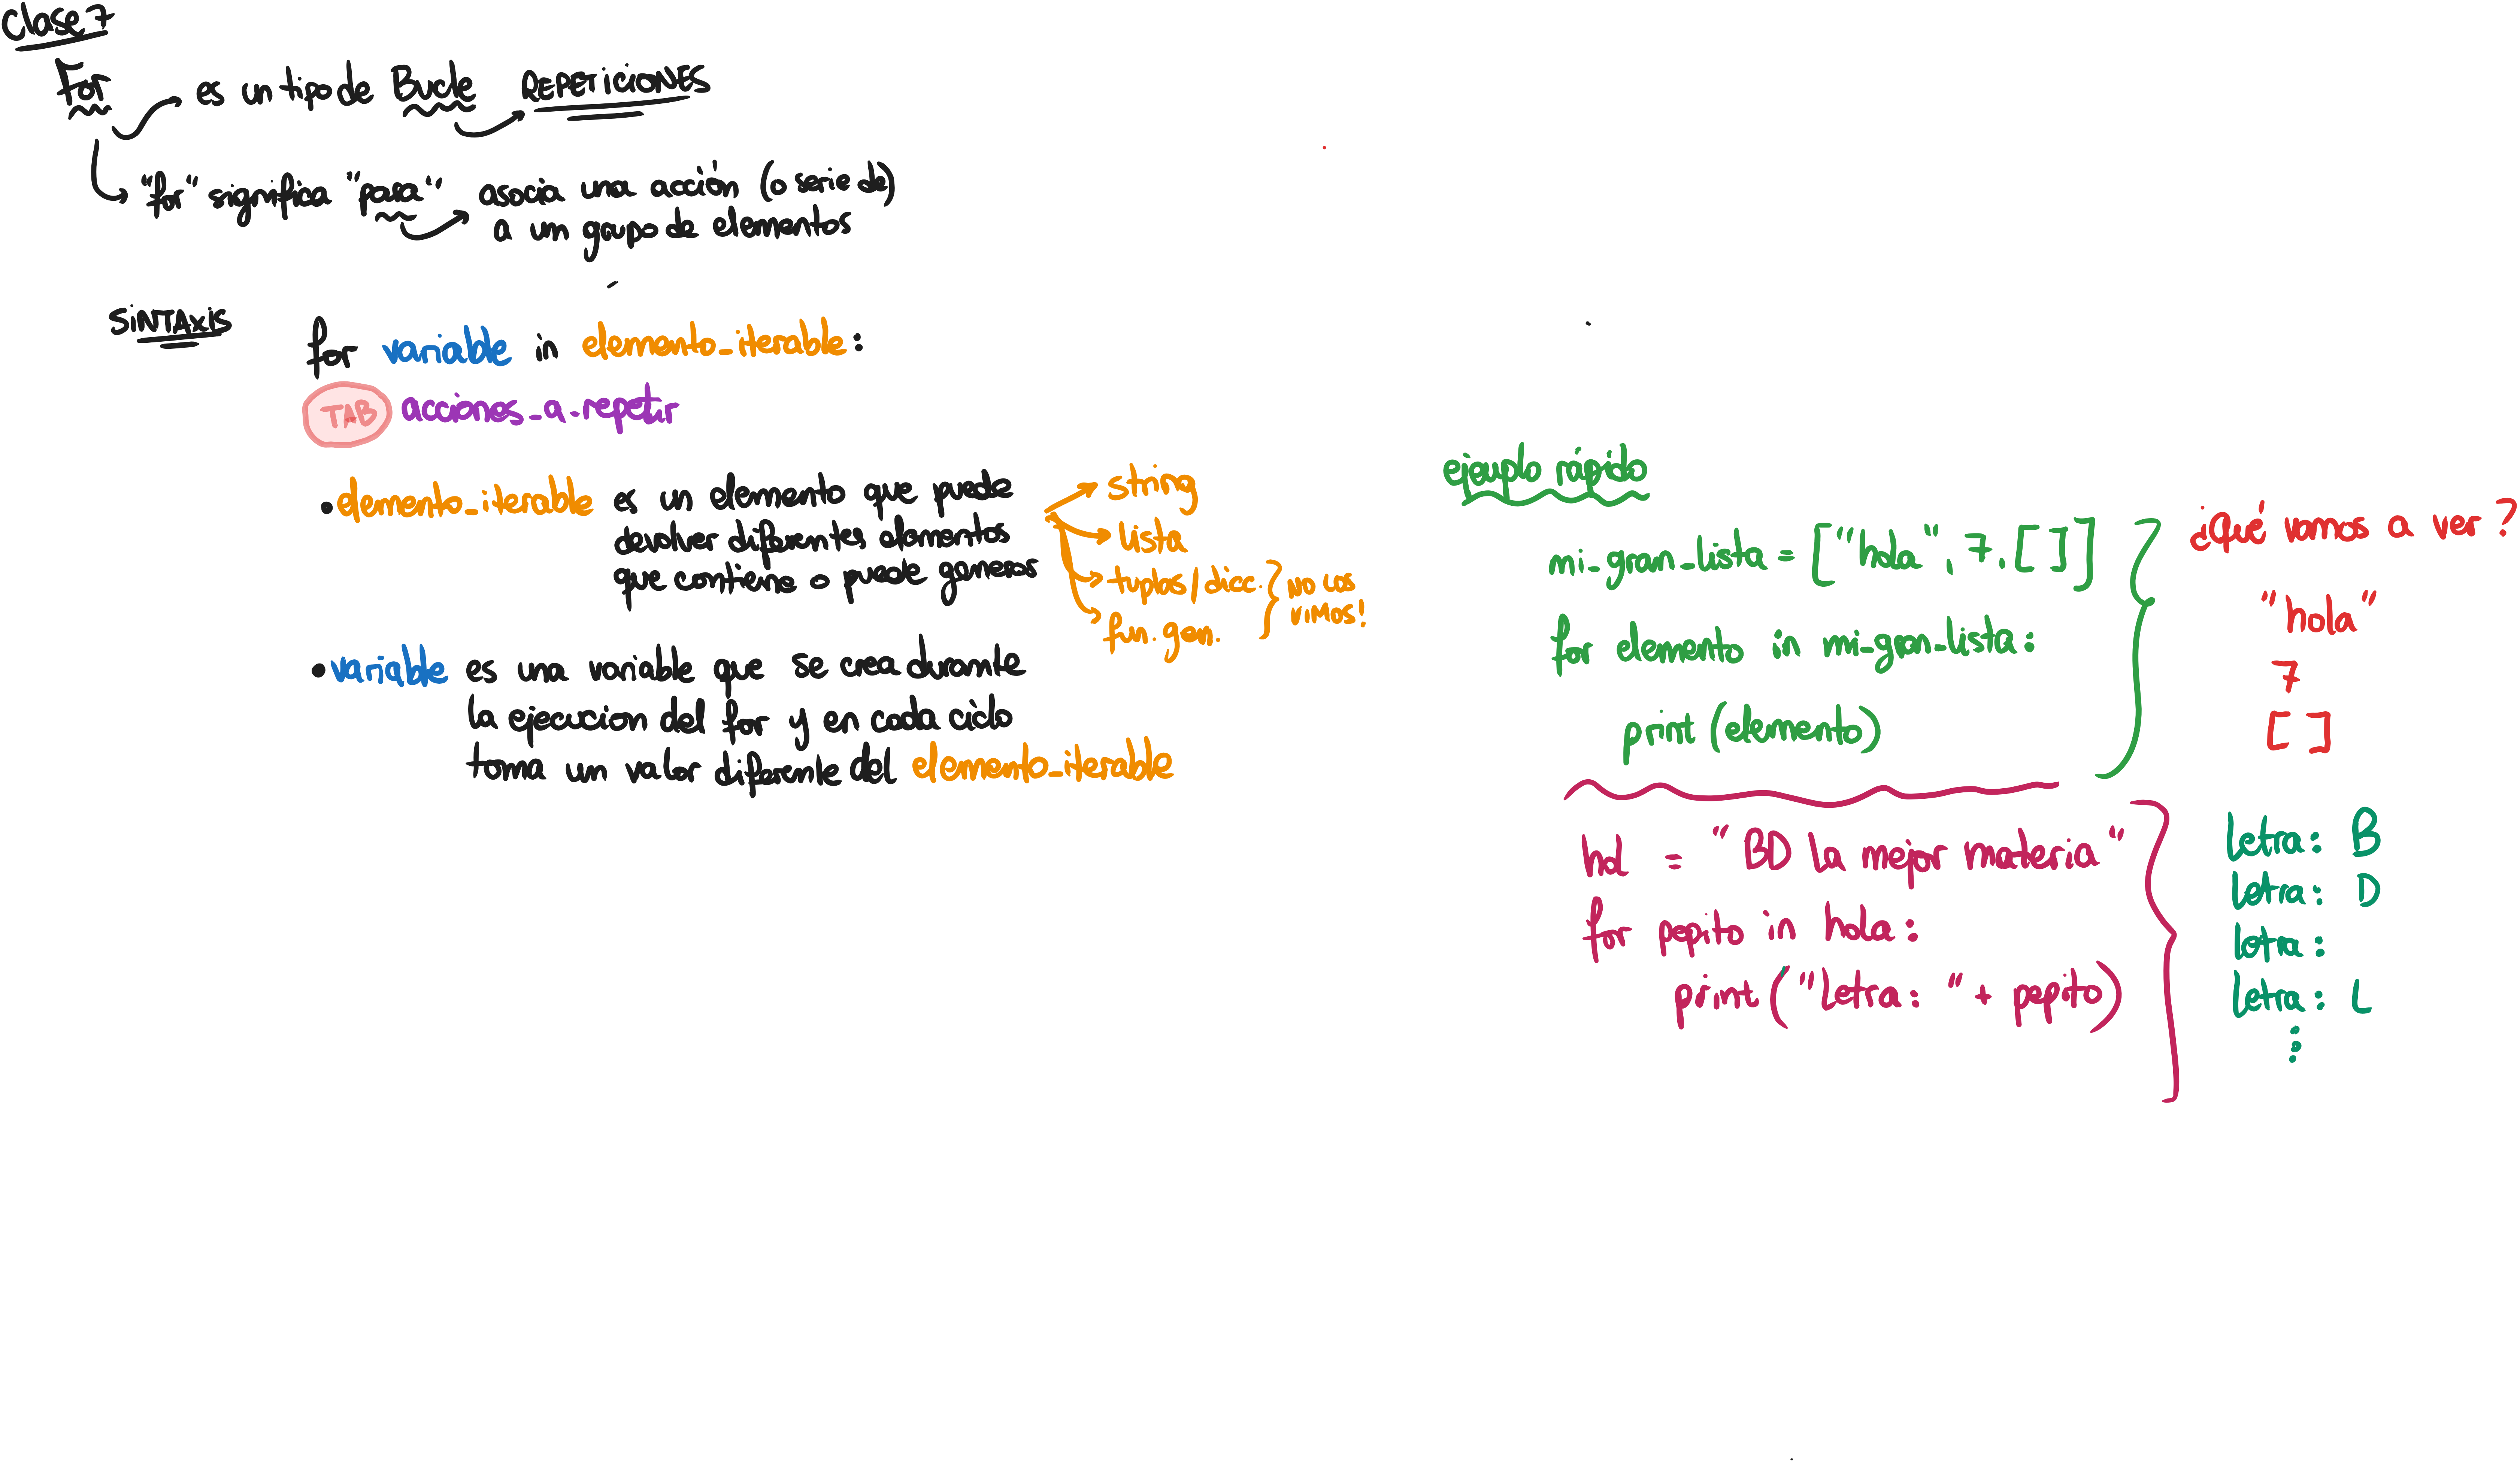 Clase 7
For es un tipo de Bucle REPETICIONES
"for" significa "para" asocia una acción (o serie de)
a un grupo de elementos
SINTAXIS
for variable in elemento_iterable:
TAB acciones_a_repetir
• elemento_iterable es un elemento que puede
devolver diferentes elementos
que contiene o puede generar
string
lista
tuplas/dicc.
fun. gen.
NO LOS
VIMOS!
• variable es una variable que se crea durante
la ejecucion del for y en cada ciclo
toma un valor diferente del elemento_iterable
ejemplo rápido
mi_gran_lista = ["hola", 7, [ ]]
for elemento in mi_gran_lista:
print (elemento)
¿Qué vamos a ver?
"hola"
7
[ ]
hol = "BD la mejor materia"
for pepito in hola:
print ("Letra: " + pepito)
Letra: B
Letra: D
Letra:
Letra: L
⋮